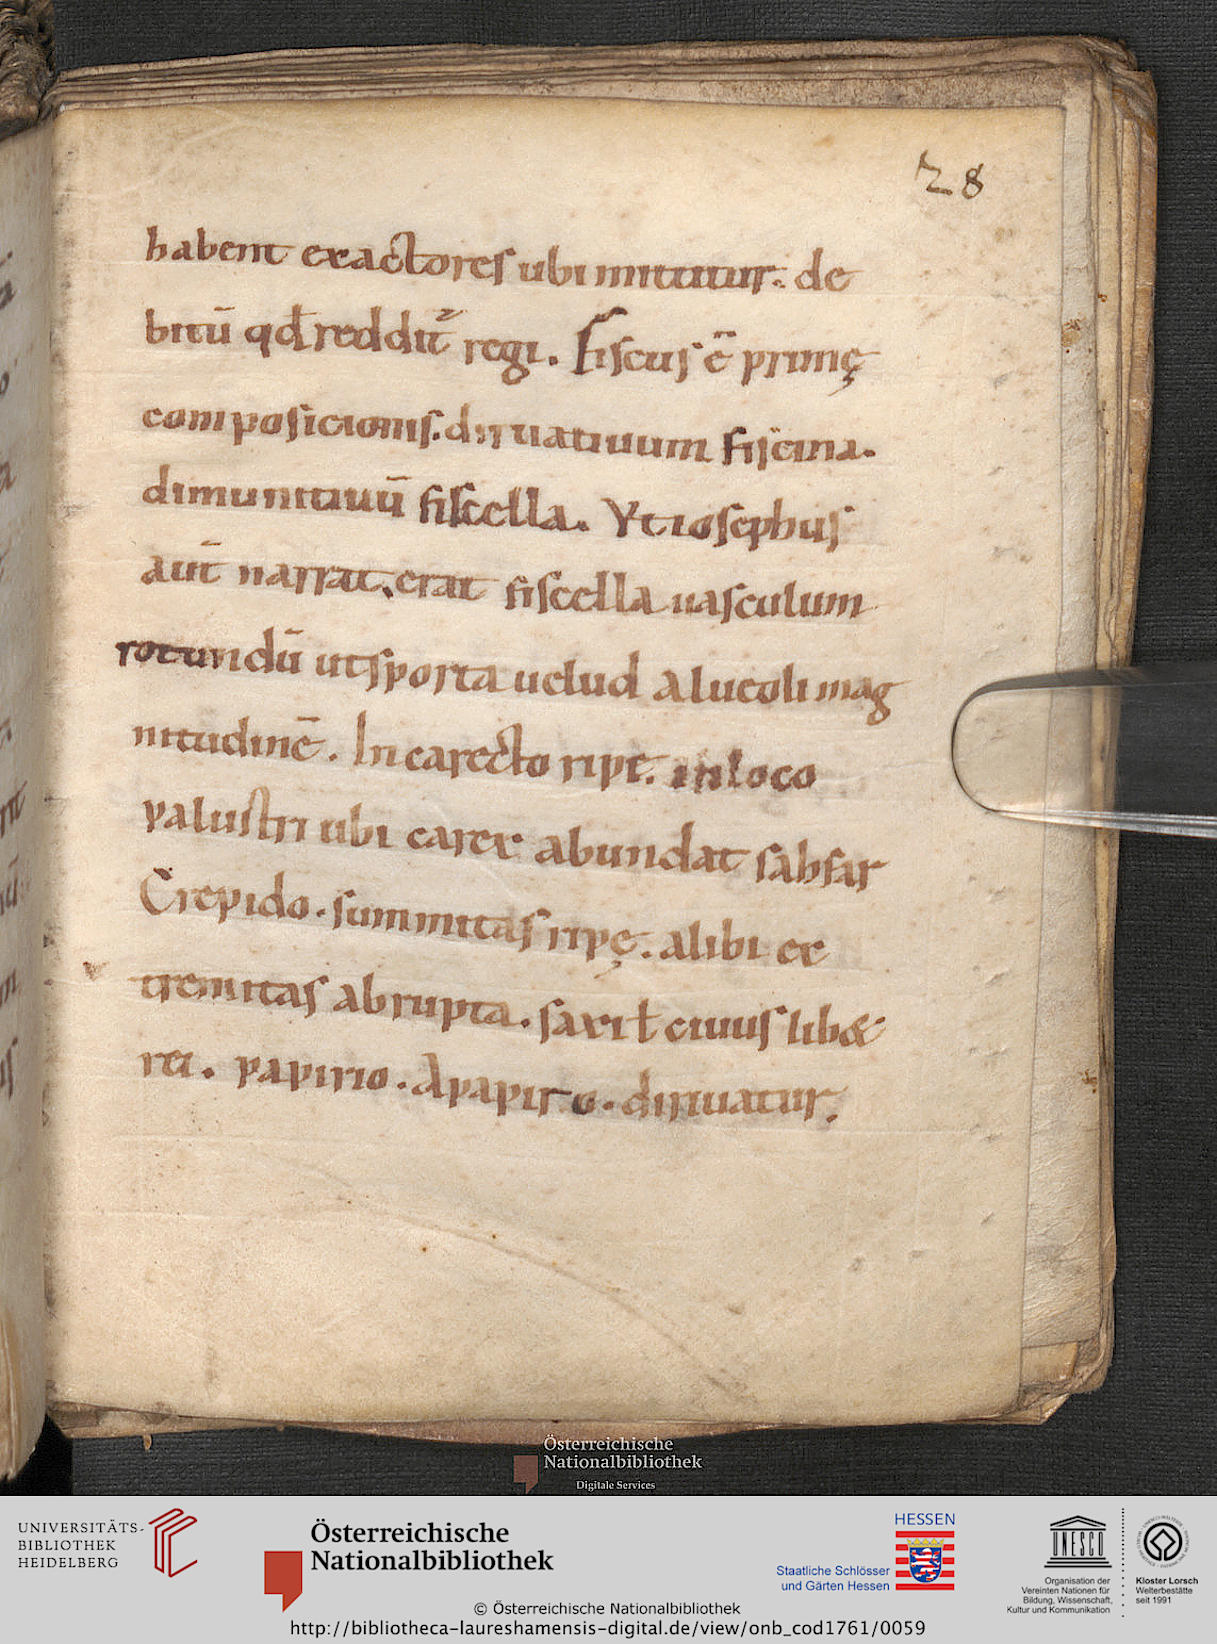 28
habent exactores ubi mittitur. de
bitū qđ reddit̄ regi. Fiscus ē primę
composicionis. diriuatiuum fiscina.
dimunitiuū fiscella. Vt iosephus
aut̄ narrat. erat fiscella uasculum
rotundū ut sporta uelud alueoli mag
nitudinē. In carecto ripę. in loco
palustri ubi carex abundat sahfar
Crepido. summitas ripę. alibi ex
tremitas abrupta. saxi ł cuius lib&
rei. papirio. A papiro. diriuatur.
Österreichische
Nationalbibliothek
Digitale Services
UNIVERSITÄTS-
BIBLIOTHEK
HEIDELBERG
Österreichische
Nationalbibliothek
HESSEN
Staatliche Schlösser
und Gärten Hessen
UNESCO
Organisation der
Vereinten Nationen für
Bildung, Wissenschaft,
Kultur und Kommunikation
Kloster Lorsch
Welterbestätte
seit 1991
© Österreichische Nationalbibliothek
http://bibliotheca-laureshamensis-digital.de/view/onb_cod1761/0059